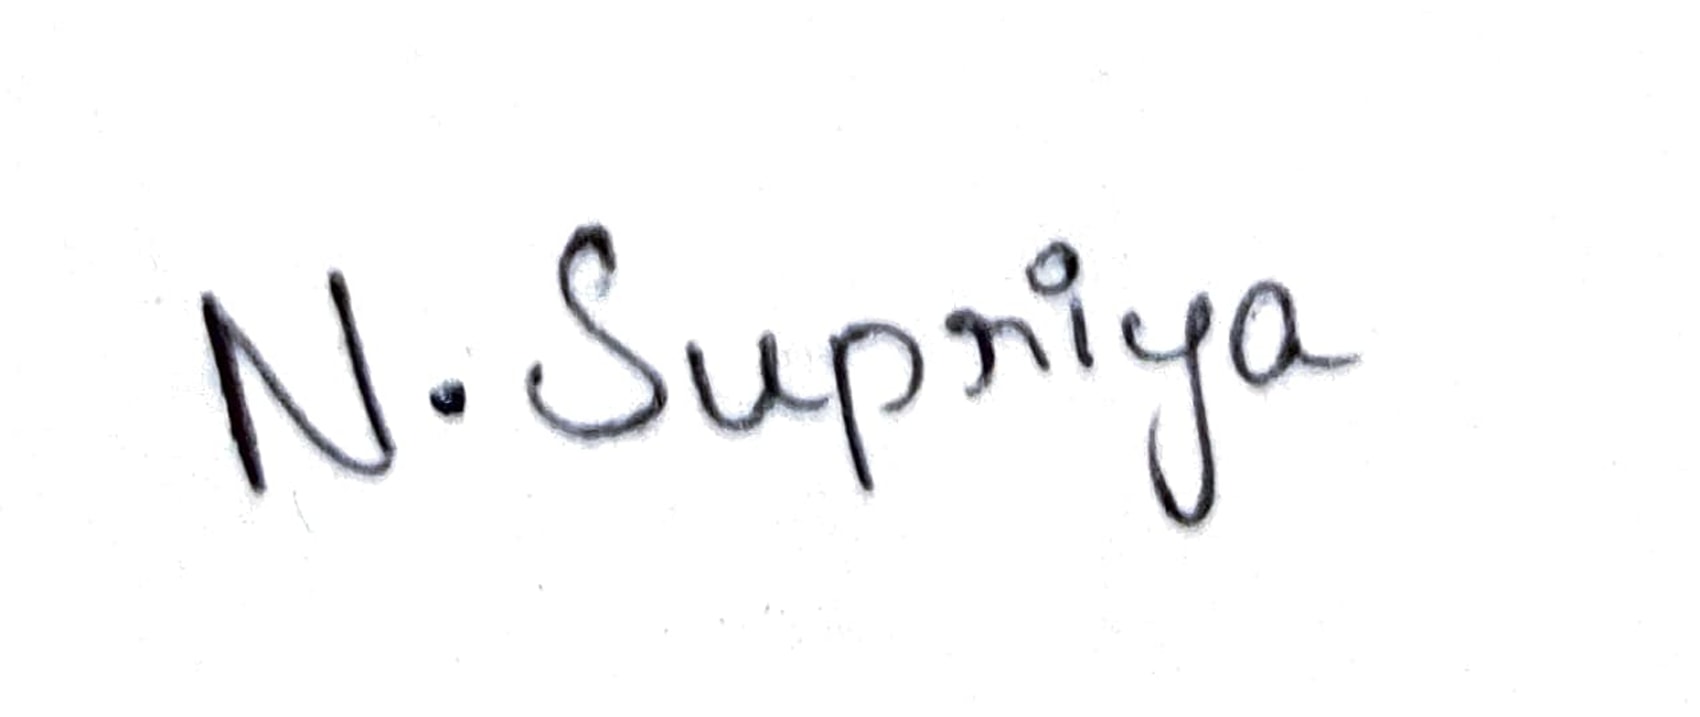 N. Supriya